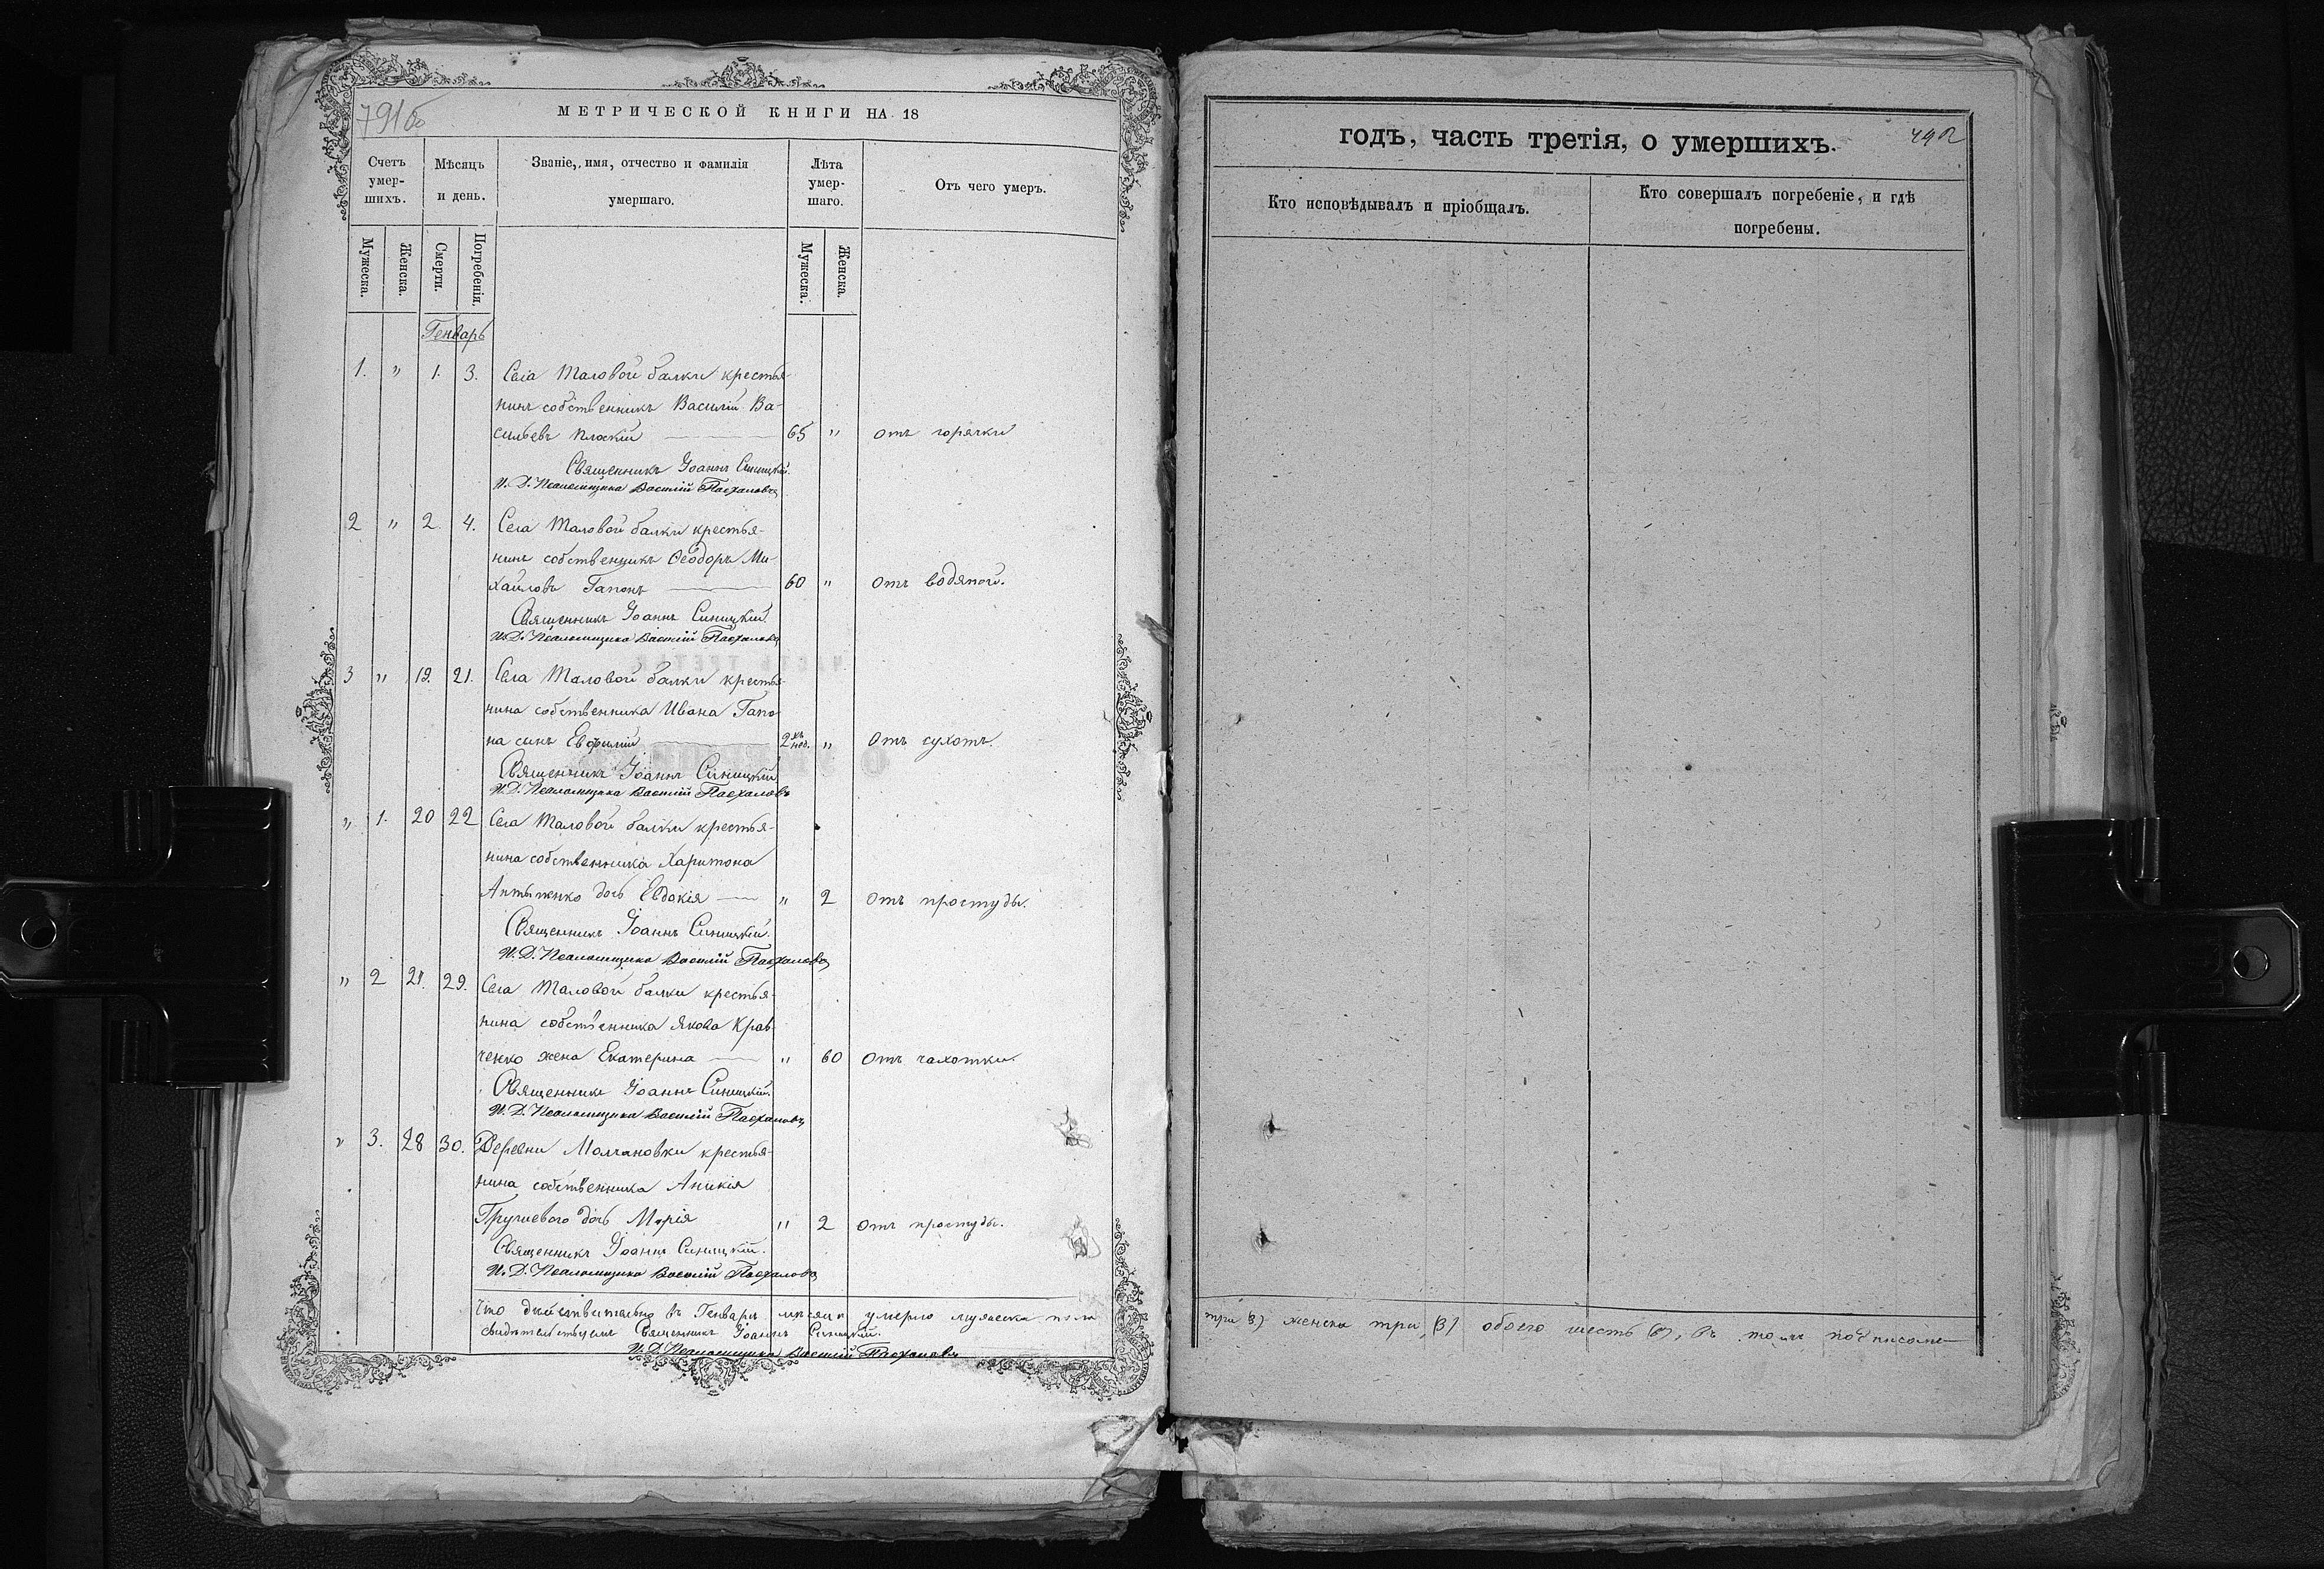 791 об
МЕТРИЧЕСКОЙ КНИГИ НА 18
Счетъ умер-шихъ.
Мѣсяцъ и день.
Званіе, имя, отчество и фамилія умершаго.
Лѣта умер-шаго.
Отъ чего умеръ.
Мужеска.
Женска.
Смерти.
Погребенія.
Мужеска.
Женска.
Генварь
1. " 1. 3. Села Таловой балки крестья-
нинъ собственникъ Василій Ва-
сильевъ Плоскій 65 " отъ горячки
Священникъ Іоаннъ Синицкій.
И. Д. Псаломщика Василій Пасхаловъ
2 " 2. 4. Села Таловой балки крестья-
нинъ собственникъ Ѳеодоръ Ми-
хайловъ Гапонъ 60 " отъ водяной.
Священникъ Іоаннъ Синицкій.
И. Д. Псаломщика Василій Пасхаловъ
3 " 19. 21. Села Таловой балки крестья-
нина собственника Ивана Гапо-
на сынъ Евфимій 2хъ нед. " Отъ сухотъ.
Священникъ Іоаннъ Синицкій
И. Д. Псаломщика Василій Пасхаловъ
" 1. 20 22 Села Таловой балки крестья-
нина собственника Харитона
дочь Евдокія " 2 Отъ простуды.
Священникъ Іоаннъ Синицкій.
И. Д. Псаломщика Василій Пасхаловъ
" 2 29. Села Таловой балки крестья-
нина собственника Якова Крав-
ченко жена Екатерина " 60 Отъ чахотки.
Священникъ Іоаннъ Синицкій.
И. Д. Псаломщика Василій Пасхаловъ
" 3. 28 30. Деревни Молчановки крестья-
нина собственника Аникія
дочь Марія " 2 Отъ простуды.
Священникъ Іоаннъ Синицкій.
И. Д. Псаломщика Василій Пасхаловъ
Что дѣйствительно въ Генварѣ мѣсяцѣ умерло мужеска пола
свидѣтельствуемъ Священникъ Іоаннъ Синицкій.
И. Д. Псаломщика Василій Пасхаловъ
годъ, часть третія, о умершихъ.
792
Кто исповѣдывалъ и пріобщалъ.
Кто совершалъ погребеніе, и гдѣ
погребены.
три 3) женска три, 3) обоего шесть 6), въ томъ подписомъ